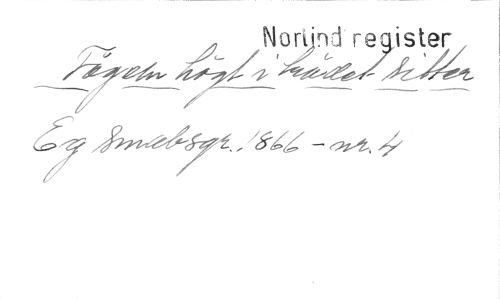 Norlind register
Fågeln högt i trädet sitter
Eg smålsgr. 1866 - nr. 4